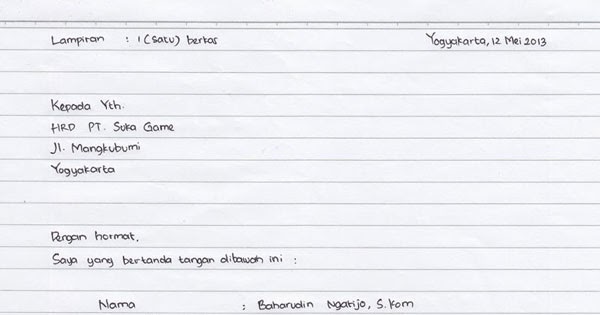 Lampiran : 1 (satu) berkas Yogyakarta, 12 Mei 2013
Kepada Yth.
HRD PT. Suka Game
Jl. Mangkubumi
Yogyakarta
Dengan hormat,
Saya yang bertanda tangan dibawah ini :
Nama : Baharudin Ngatijo, S.Kom